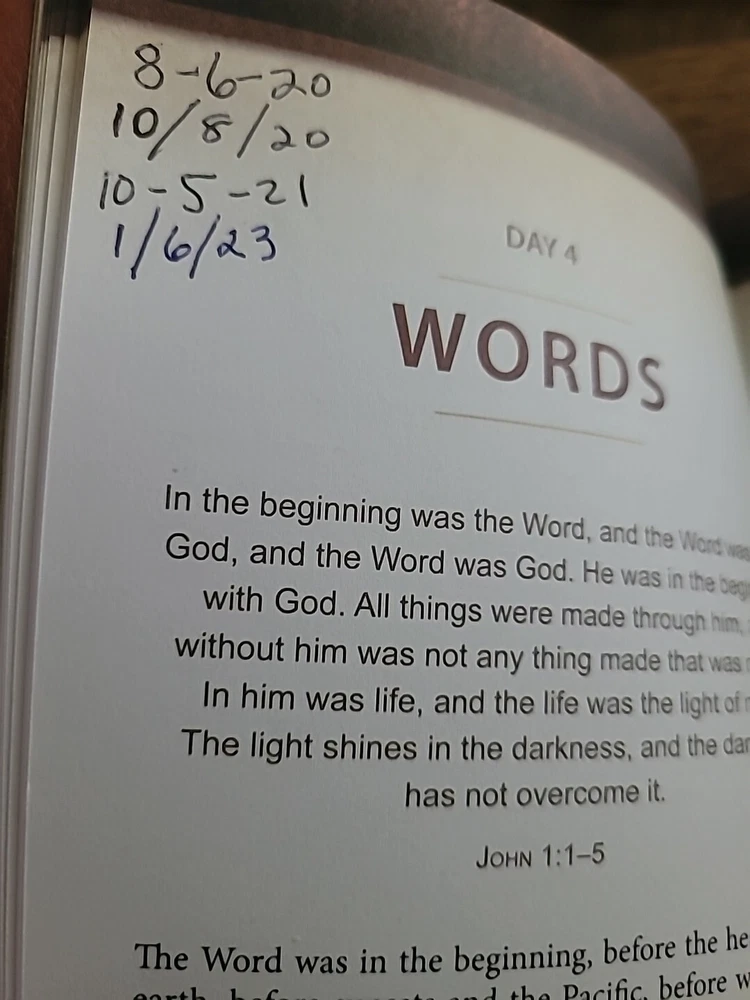 8-6-20
10/8/20
10-5-21
1/6/23
DAY 4
WORDS
In the beginning was the Word, and the Word was
God, and the Word was God. He was in the
with God. All things were made through him,
without him was not any thing made that was
In him was life, and the life was the light of
The light shines in the darkness, and the
has not overcome it.
JOHN 1:1–5
The Word was in the beginning, before the
earth, before and the Pacific, before